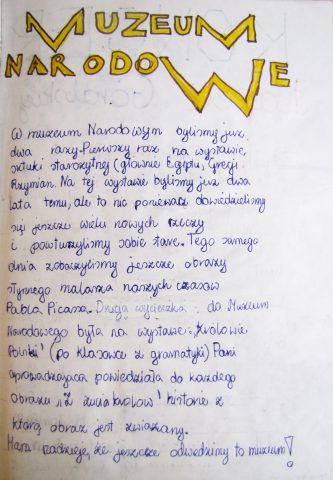 MUZEUM
NARODOWE
W muzeum Narodowym byliśmy już
dwa razy. Pierwszy raz na wystawie
sztuki starożytnej (głównie Egiptu, Grecji
Rzymian. Na tej wystawie byliśmy już dwa
lata temu, ale to nic ponieważ dowiedzieliśmy
się jeszcze wielu nowych rzeczy
i powtórzyliśmy sobie stare. Tego samego
dnia zobaczyliśmy jeszcze obrazy
słynnego malarza naszych czasów
Pabla Picassa. Druga wycieczka do Muzeum
Narodowego była na wystawę: „Królowie
Polski" (po klasówce z gramatyki) Pani
oprowadzająca powiedziała do każdego
obrazu „z życia królów" historię z
którą obraz jest związany.
Mam nadzieję, że jeszcze odwiedzimy to muzeum!